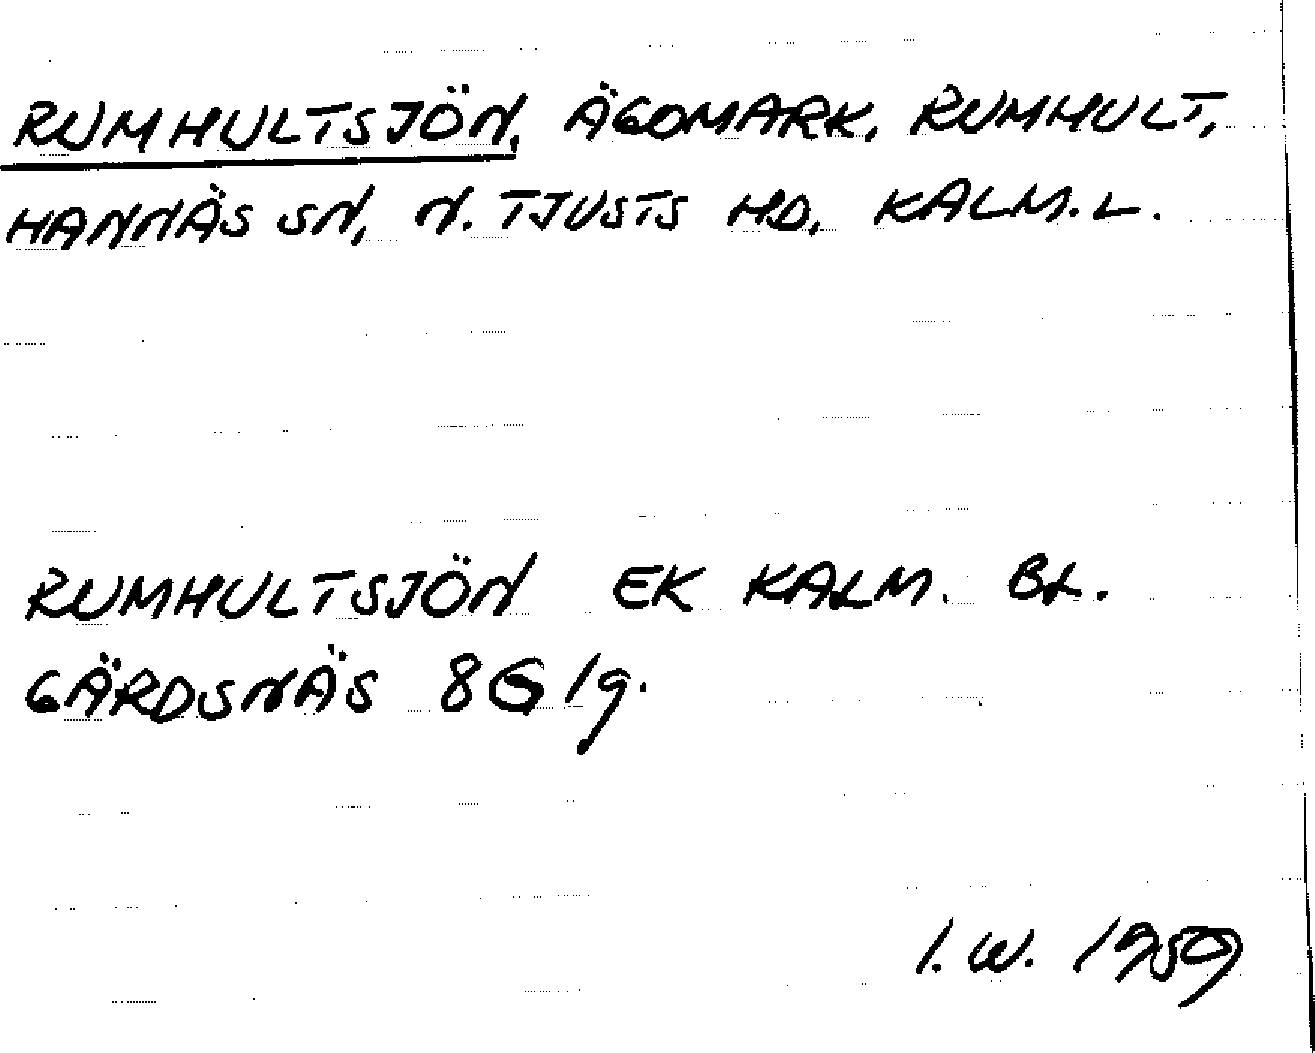 RUMHULTSJÖN, ÄGOMARK, RUMHULT,
HANNÄS SN, N. TJUSTS HD, KALM. L.
RUMHULTSJÖN EK KALM. BL.
GÄRDSNÄS 8G 1g.
I. W. 1959